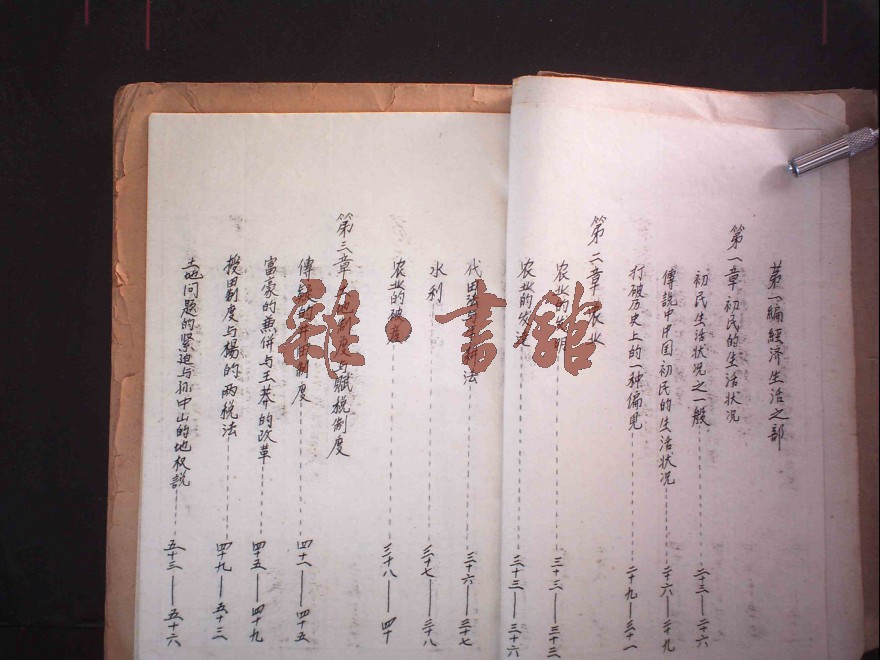 第一編 經济生活之部
第一章 初民的生活狀况
初民生活狀况之一般 二十三——二十六
傳說中中国初民的生活狀况 二十六——二十九
打破历史上的一种偏見 二十九——三十一
第二章 农业
农业的 三十三——三十三
农业的 三十三——三十六
代田 法 三十六——三十七
水利 三十七——三十八
农业的破產 三十八——四十
第三章 土地制度与賦税制度
傳疑的井田制度 四十一——四十五
富豪的兼併与王莽的改革 四十五——四十九
授田制度与楊的兩税法 四十九——五十三
土地问题的緊迫与孙中山的地权說 五十三——五十六
雜·書館